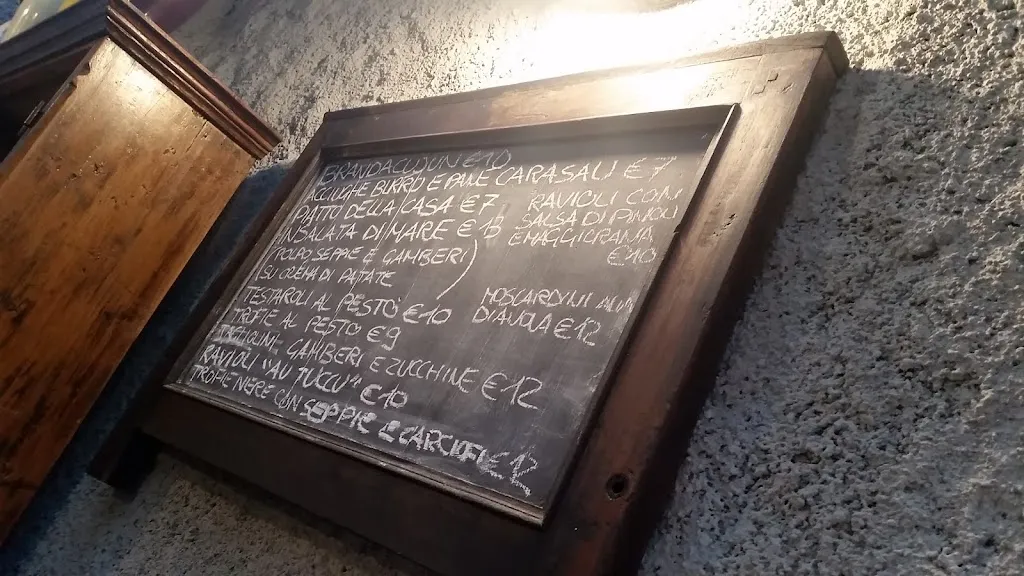 BRANDACUJUN €10
ACCIUGHE BURRO E PANE CARASAU €7
PIATTO DELLA CASA €7
INSALATA DI MARE €15
(POLPO SEPPIE E GAMBERI)
(SU CREMA DI PATATE
TESTAROLI AL PESTO €10
TROFIE AL PESTO €9
GAMBERI E ZUCCHINE €12
RAVIOLI "AU TUCCU" €10
TROFIE NERE CON SEPPIE E CARCIOFI €12
RAVIOLI CON
SALSA DI PINOLI
E MAGGIORANA
€10
MOSCARDINI ALLA
DIAVOLA €12